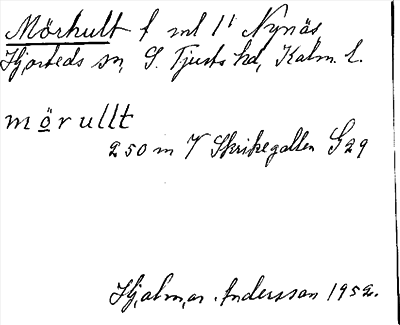 Mörhult t ml 1¹ Nynäs,
Hjorteds sn, S. Tjusts hd, Kalm. l.
mörullt
250 m V Skrikegallen G29
Hjalmar Andersson 1952.